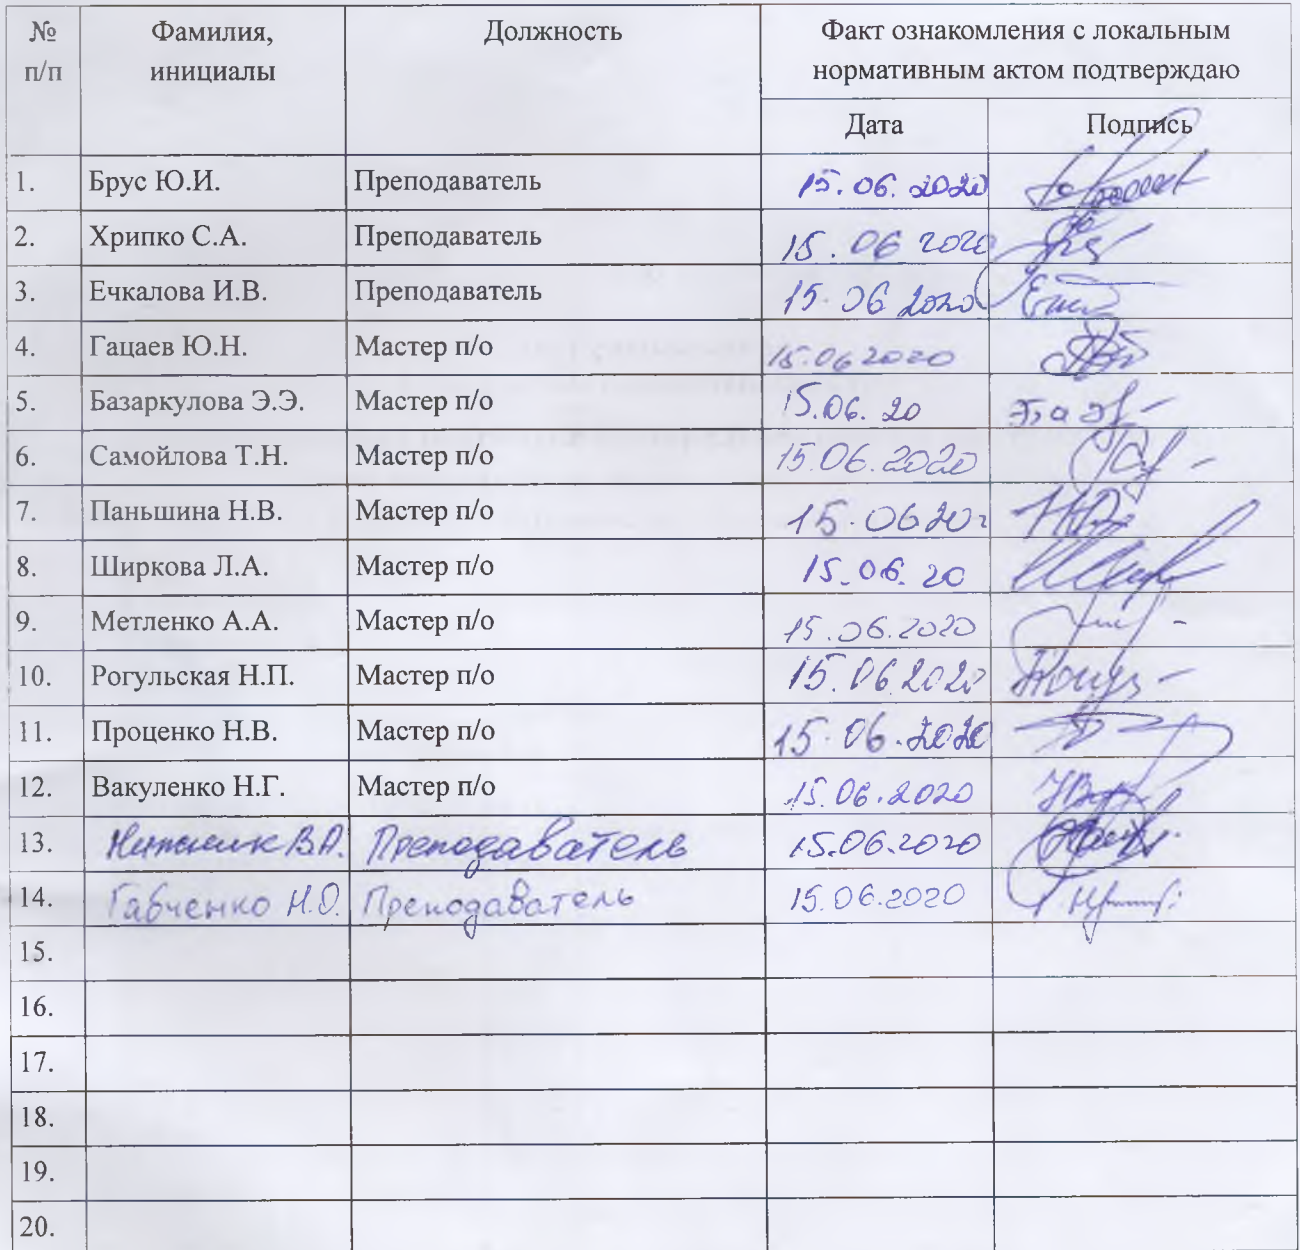 № Фамилия, Должность Факт ознакомления с локальным
п/п инициалы нормативным актом подтверждаю
Дата Подпись
1. Брус Ю.И. Преподаватель 15.06.2020
2. Хрипко С.А. Преподаватель 15.06 2020
3. Ечкалова И.В. Преподаватель 15.06 2020
4. Гацаев Ю.Н. Мастер п/о 15.06 2020
5. Базаркулова Э.Э. Мастер п/о 15.06. 20
6. Самойлова Т.Н. Мастер п/о 15.06.2020
7. Паньшина Н.В. Мастер п/о 15.06 20г
8. Ширкова Л.А. Мастер п/о 15.06. 20
9. Метленко А.А. Мастер п/о 15.06.2020
10. Рогульская Н.П. Мастер п/о 15.06 2020
11. Проценко Н.В. Мастер п/о 15.06.2020
12. Вакуленко Н.Г. Мастер п/о 15.06.2020
13. Преподаватель 15.06.2020
14. Габченко Н.О. Преподаватель 15.06.2020
15.
16.
17.
18.
19.
20.